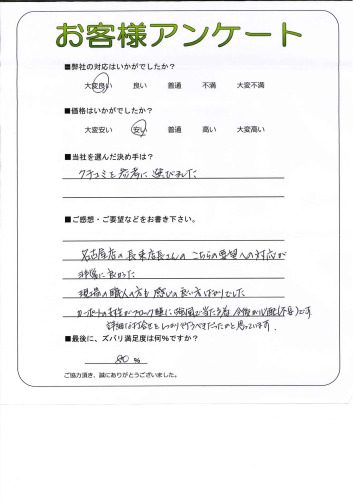 お客様アンケート
■弊社の対応はいかがでしたか?
大変良い 良い 普通 不満 大変不満
■価格はいかがでしたか?
大変安い 安い 普通 高い 大変高い
■当社を選んだ決め手は?
クチコミを参考に選びました
■ご感想・ご要望などをお書き下さい。
名古屋店の長束店長さんのこちらの要望への対応が
非常に良かった
現場の職人の方も感じの良い方ばかりでした
カーポートの支柱がブロック
詳細な打合せをしっかり たかと思っています。
■最後に、ズバリ満足度は何%ですか?
80 %
ご協力頂き、誠にありがとうございました。